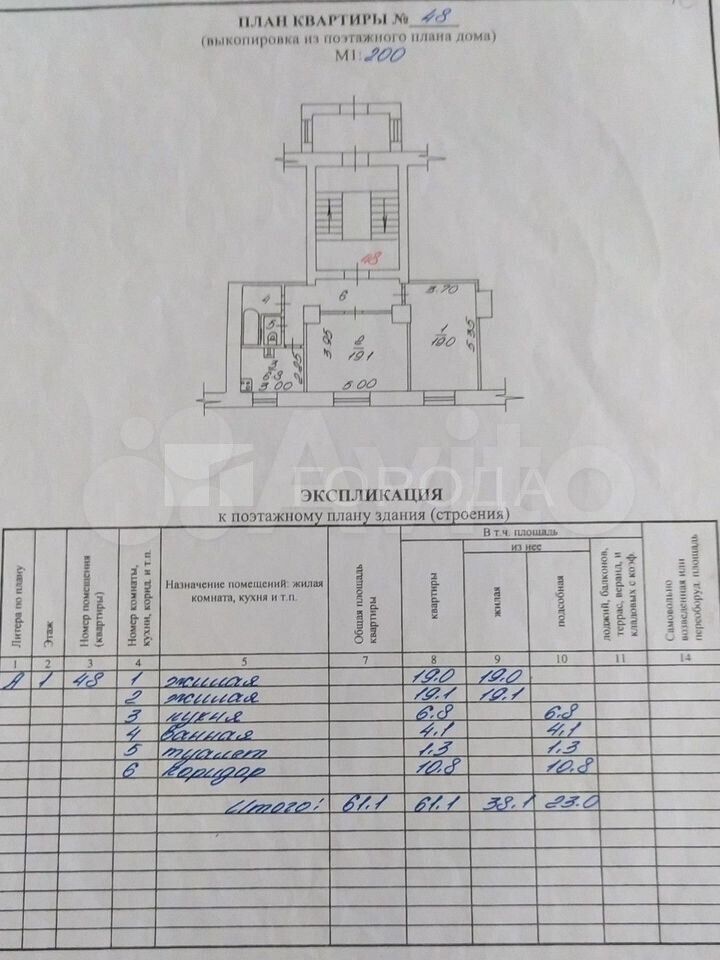 ПЛАН КВАРТИРЫ № 48
(выкопировка из поэтажного плана дома)
М1:200
48
6
4
5
3.70
1
19.0
5.35
3.95
2
19.1
5.00
2.25
3
3.00
Avito
ГОРОДА
ЭКСПЛИКАЦИЯ
к поэтажному плану здания (строения)
Литера по плану
Этаж
Номер помещения (квартиры)
Номер комнаты, кухни, корид. и т.п.
Назначение помещений: жилая комната, кухня и т.п.
Общая площадь квартиры
В т.ч. площадь
из нее
квартиры
жилая
подсобная
лоджий, балконов, террас, веранд, и кладовых с коэф.
Самовольно возведенная или переоборуд. площадь
1 2 3 4 5 7 8 9 10 11 14
А 1 48 1 жилая 19.0 19.0
2 жилая 19.1 19.1
3 кухня 6.8 6.8
4 ванная 4.1 4.1
5 туалет 1.3 1.3
6 коридор 10.8 10.8
Итого: 61.1 61.1 38.1 23.0